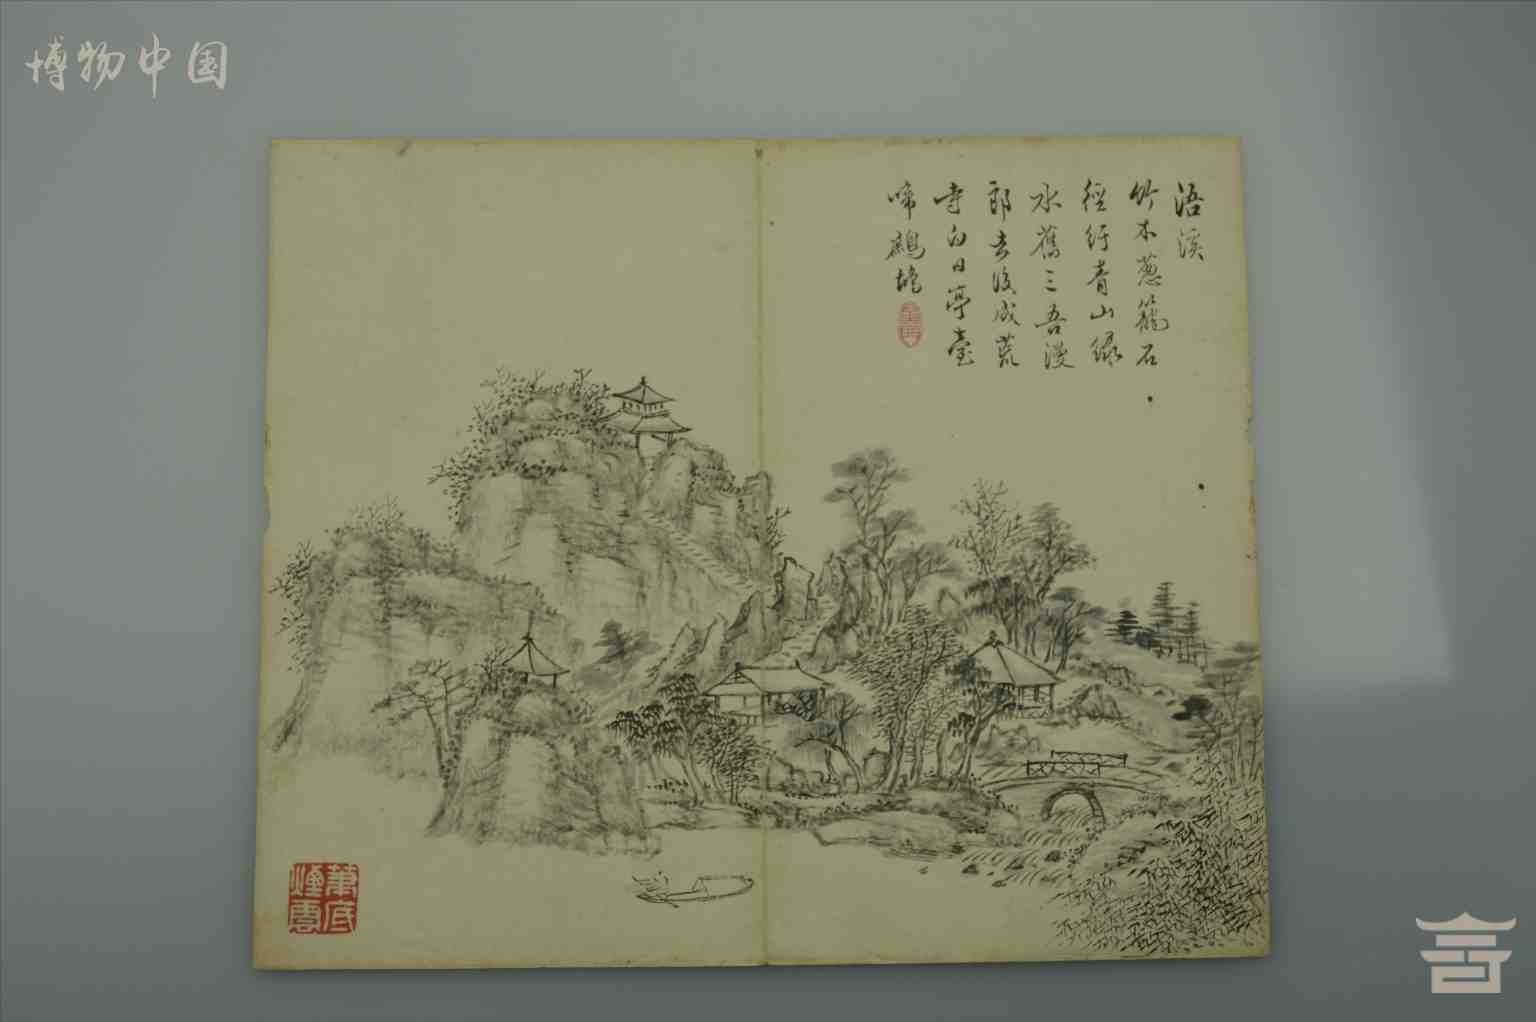 博物中国
浯溪
竹木葱籠石
徑紆青山緑
水舊三吾漫
郎去後成荒
寺白日亭臺
啼鷓鴣
筆底
煙雲